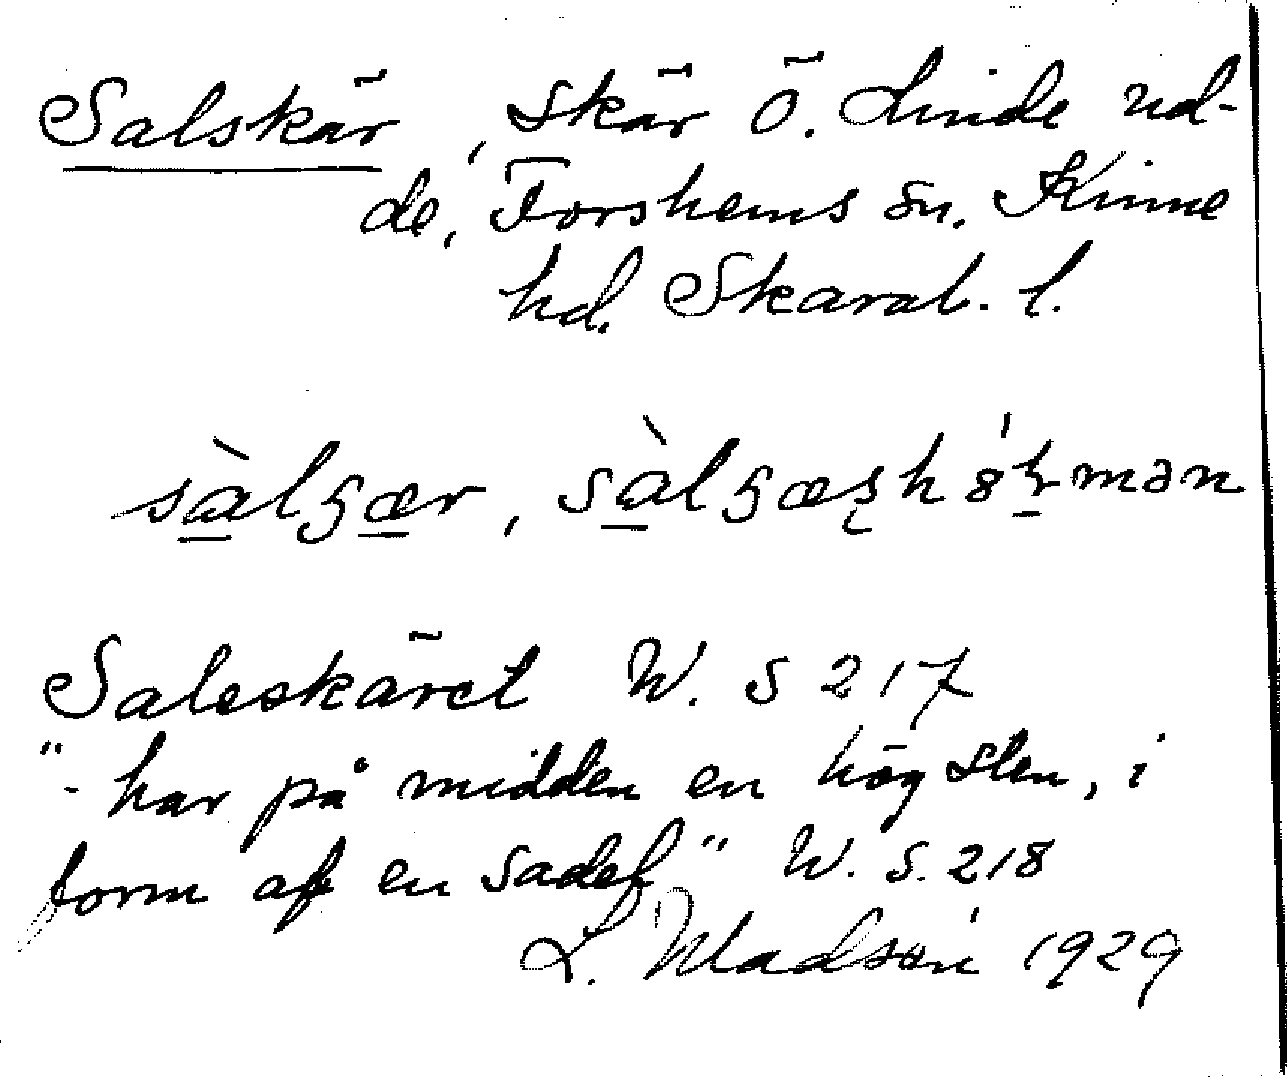 Salskär, skär ö. Linde ud-
de, Forshems sn. Kinne
hd. Skarab. l.
sàlʒær, sàlʒæʂhɵ̀ɽmən
Saleskäret W. S 217
"- har på midden en hög sten, i
form af en sadel" W. S. 218
L. Madsén 1929